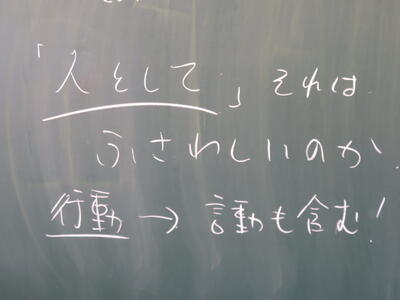 「人として」それは
ふさわしいのか
行動→言動も含む!